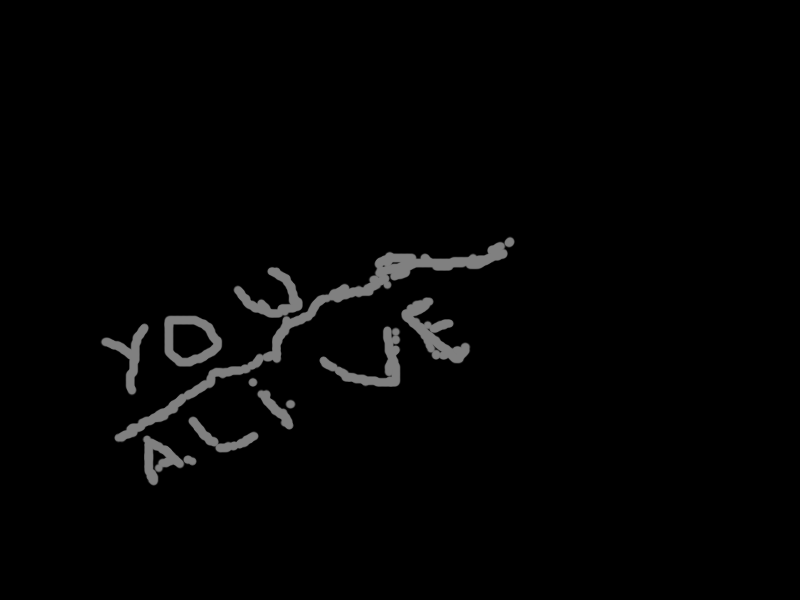 YOU
ALIVE